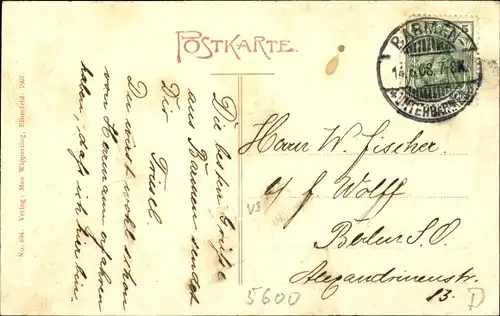 POSTKARTE.
BARMEN-
14.6.08. 7-8N.
UNTERBARMEN
Die besten Grüße
aus Barmen sendet
Dir
Du wirst wohl schon
von Hermann erfahren
haben, daß ich hier bin.
Herrn W. Fischer.
W. Wolff
Berlin S.O.
Alexandrinenstr.
83.
5600
D
VS
No. 694. Verlag: Max Wipperling, Elberfeld. 1907.